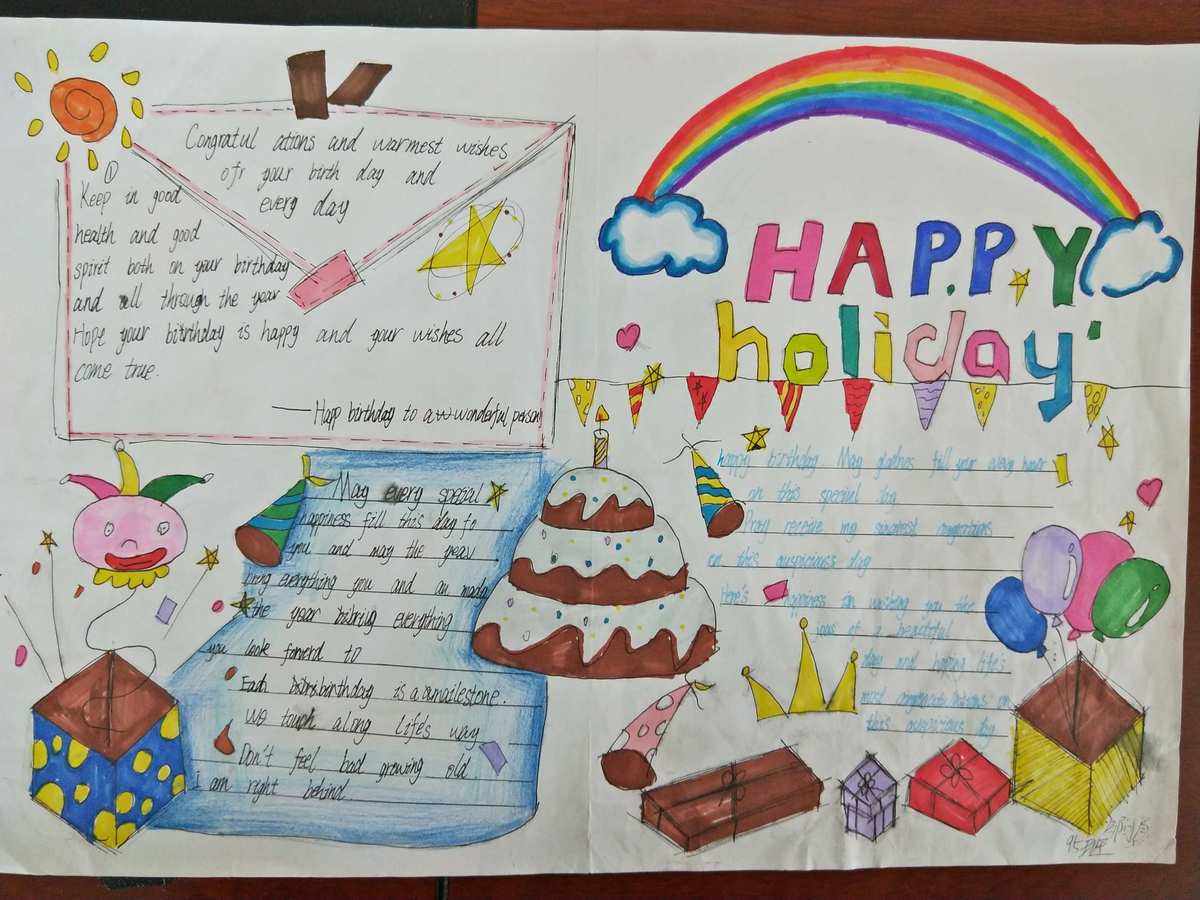 Congratul ations and warmest wishes
ofr your birth day and
every day
①
Keep in good
health and good
spirit both on your birthday
and all through the year
Hope your birthday is happy and your wishes all
come true.
—Happ birthday to a wonderful person
HAPPY
holiday
May every special
happiness fill this day fo
you and may the year
bring everything you and an
the year everything
you look forward to
Each birthday is a milestone.
We touch along life's way
Don't feel bad growing old
I am right behind
happy birthday May fill your every
on this special
Pray receive my
on this auspiciness day
Here's happiness in you the
of a beautiful
day and life's
on
this